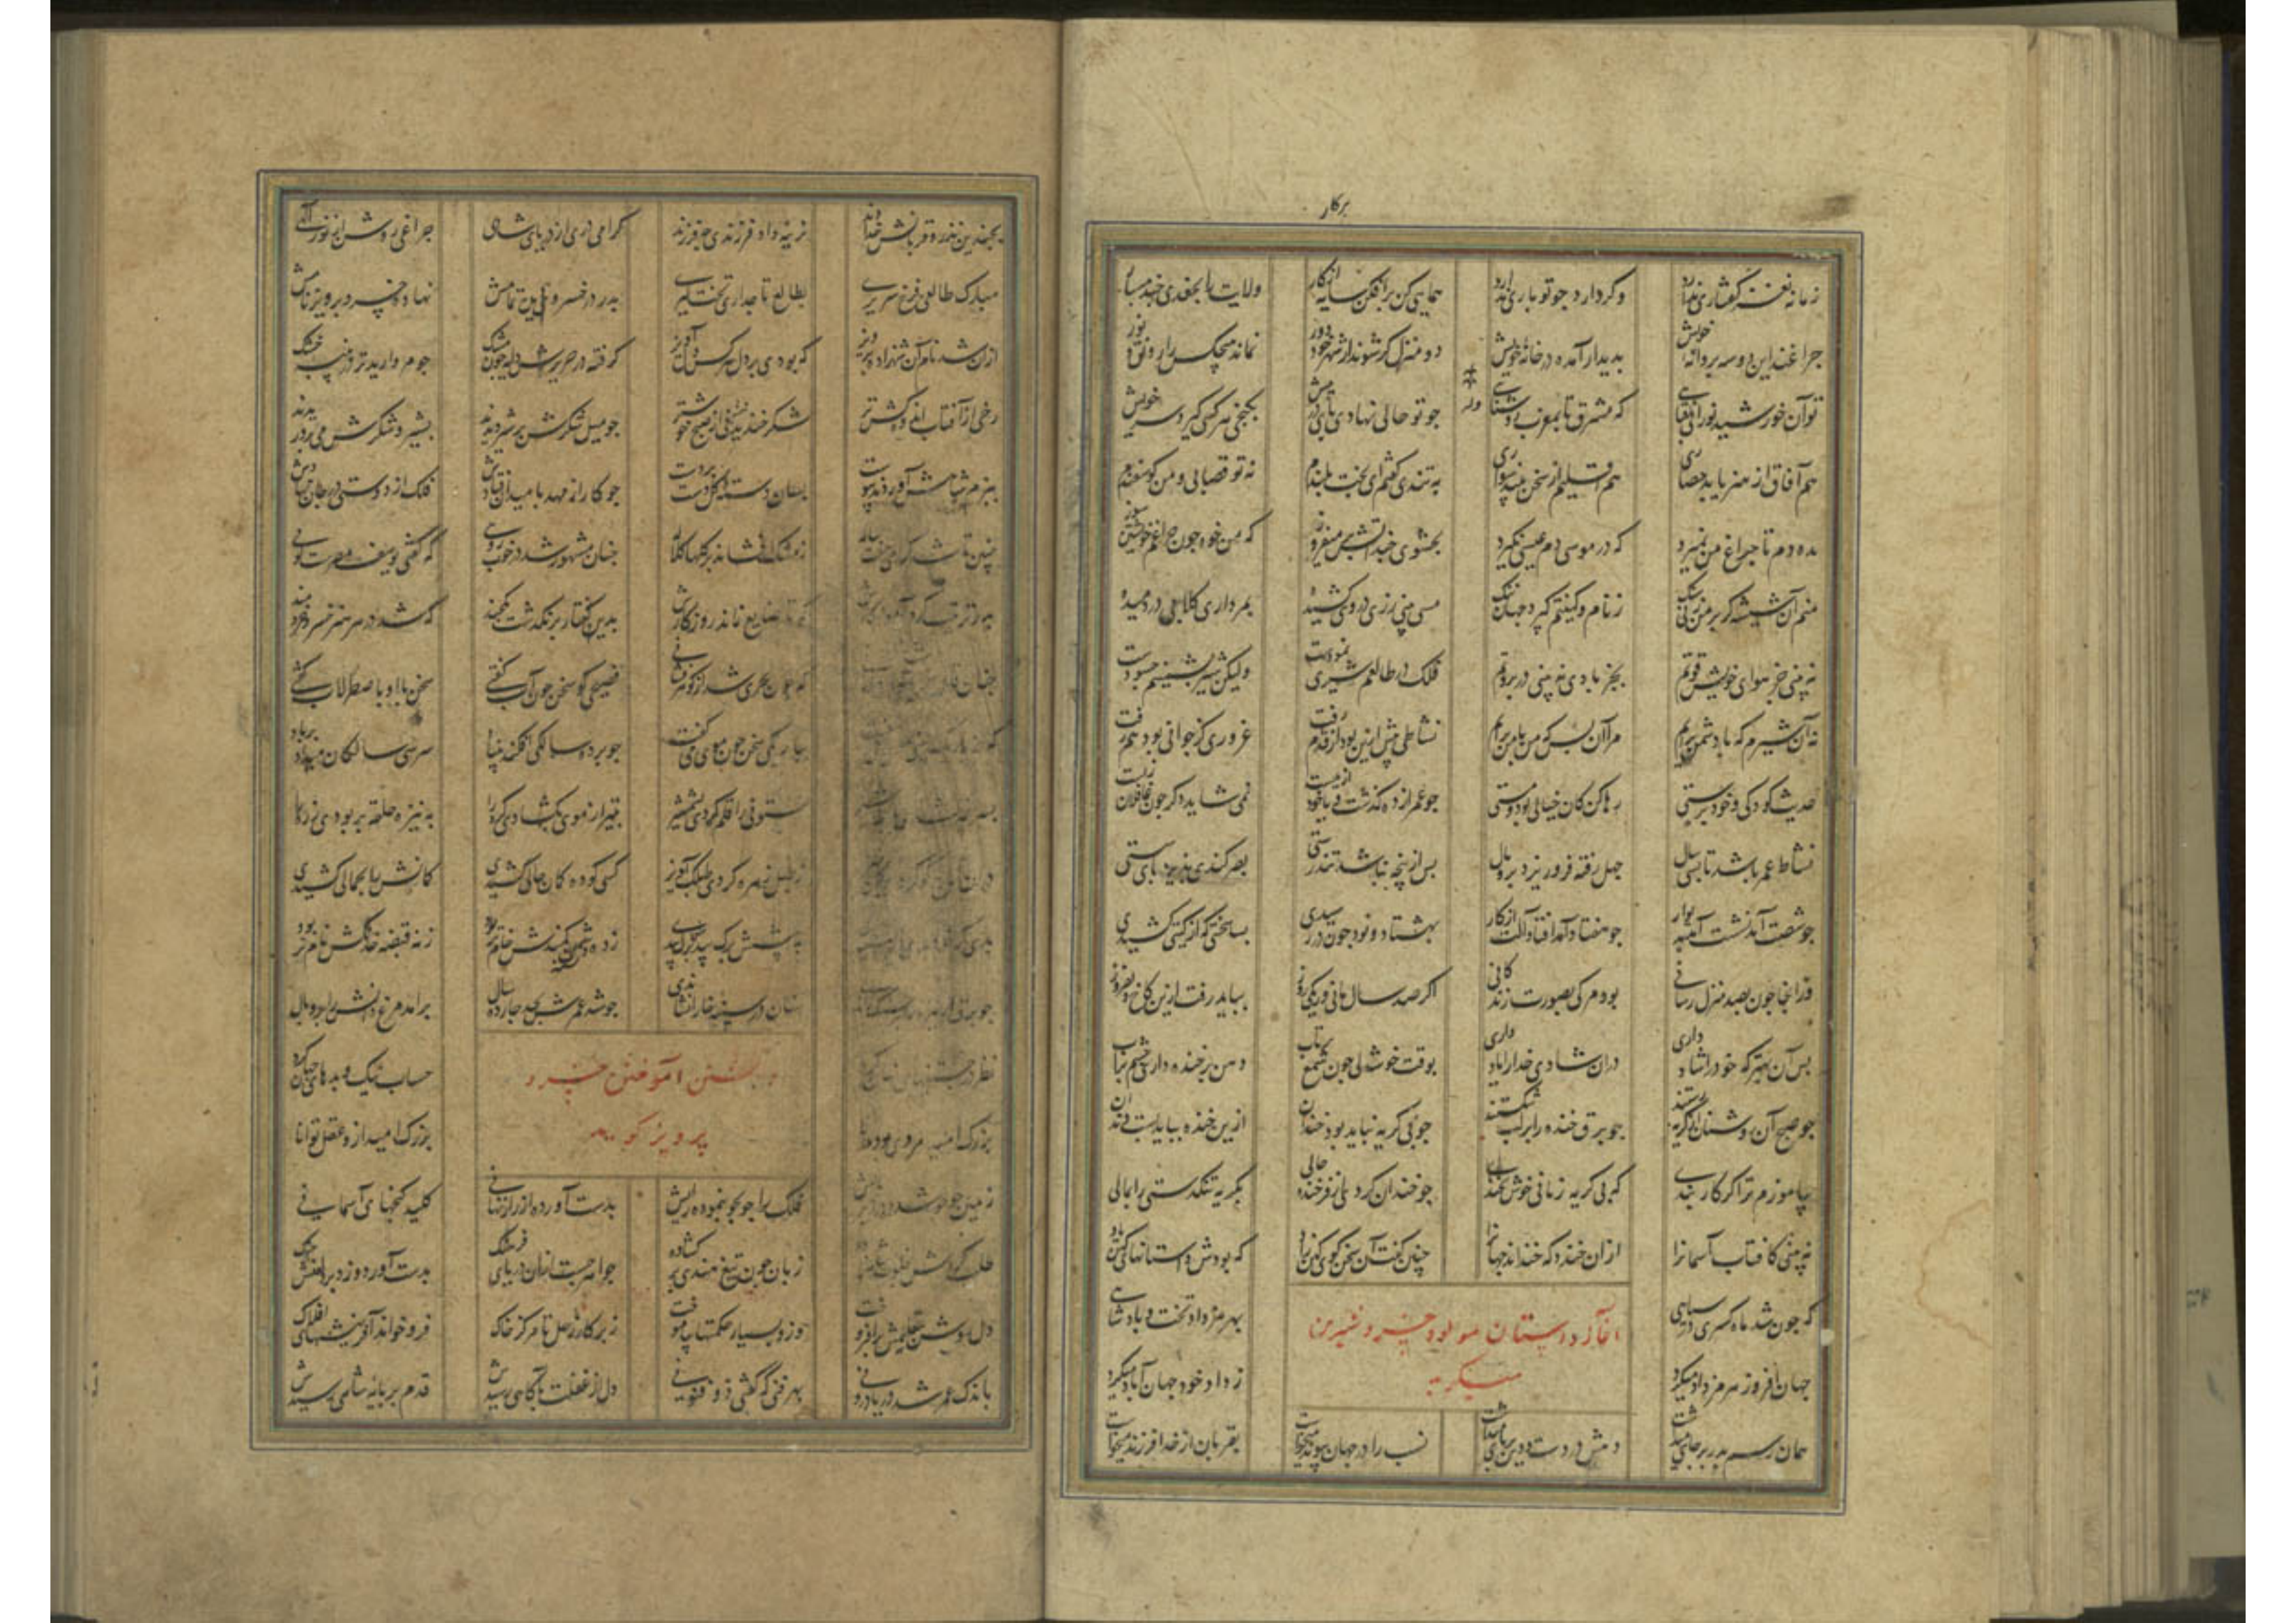 برکار
زمانه نغز گفتاری ندارد وگر دارد جو تو باری ندارد همایی کن برافکن سایه از کار ولایت را بجغدی جند مسپار
جراغند این دو سه بروانه خویش بدیدار آمده در خانه خویش دو منزل گر شوند از شهر خود دور نماند هیچکس را رونق و نور
توآن خورشید نورانی که مشرق تا بمغرب جو تو حالی نهادی بای در پیش بکنجی هر کسی گیرد سر خویش
هم آفاق از هنر یابد حصاری هم اقلیم از سخن بیند سواری به تندی گفتم ای بخت بلندم نه تو قصابی و من گوسفندم
مده دم تا جراغ من نمیرد که در موسی دم عیسی نگیرد بحشوی جند آتش بر میفروز که من خود جون جراغم خویشتن سوز
منم آن شیشه گر بر من زنی سنگ ز نام و کینتم گیرد جهان ننگ مسی بینی زری در وی کشیده بمرداری کلابی در دمیده
نه بینی جز هوای خویش قوتم بجز بادی نه بینی در بروتم فلک در طالعم شیری نمودست ولیکن شیر بشمینم جه سودست
نه آن شیرم که با دشمن برآیم مرا آن بس که من با من برآیم نشاطی پیش ازین بود آن قدم رفت غروری کز جوانی بود هم رفت
حدیث کودکی و خود برستی رها کن کان خیالی بود و مستی جو عمر از ده گذشت و یا خود از بیست نمی شاید دگر جون غافلان زیست
نشاط عمر باشد تا بسی سال جهل رفته فرو ریزد بر و بال بس از پنجه نباشد تندرستی بصر کندی پذیرد بای سستی
جو شصت آمد نشست آمد بدیوار جو هفتاد آمد افتاد آلت از کار بهشتاد و نود جون در رسیدی بسا سختی که از گیتی کشیدی
وز انجا جون بصد منزل رسانی بود مرگی بصورت زندگانی اگر صد سال مانی ور یکی روز بباید رفت ازین کاخ دلفروز
بس آن بهتر که خود را شاد داری در آن شادی خدا را یاد داری بوقت خوشدلی جون شمع بر تاب دهن بر خنده داری جشم بر آب
جو صبح آن روشنان از گریه رستند جو برق خنده را بر لب شکستند جو بی گریه نباید بود خندان ازین خنده بباید بست دندان
بیاموزم ترا گر کار بندی که بی گریه زمانی خوش بخندی جو خندان گردی از فرخنده فالی بگریه تنگدستی را بمالی
نه بینی کافتاب آسمانرا از آن خندد که خنداند جهانرا جنین گفت آن سخن گوی کهن زاد که بودش داستانهای کهن یاد
آغاز داستان مولود خسرو و شیرین میگوید
که جون شد ماه کسری در سیاهی بهرمز داد تخت و بادشاهی
جهان افروز هرمز داد میکرد ز داد خود جهان آباد میکرد
همان رسم بدر بر جای میداشت دهش در دست و دین بر بای میداشت نسب را در جهان پیوند میخواست بقربان از خدا فرزند میخواست
بجندین نذر و قربانش خداوند نرینه داد فرزندی جه فرزند گرامی دری از دریای شاهی جراغی روشن از نور الهی
مبارک طالعی فرخ سریری بطالع تاجداری تخت گیری بدر در خسروی دیده تمامش نهاده خسرو برویز نامش
از آن شد نام آن شهزاده برویز که بودی بر دل هر کس دلاویز گرفته در حریرش دایه جون مشک جو مروارید تر در پنبه خشک
رخی از آفتاب اندوه کش تر شکر خندیدنی از صبح خوشتر جو میل شکرش در شیر دیدند بشیر و شکرش می پروریدند
ببزم شاهش آوردند پیوست بسان دسته گل دست بر دست جو کار از مهد با میدان فتادش فلک از دوستی در جان نهادش
ز مشک افشاند بر گلها کلاله جنان مشهور شد در خوبرویی که گفتی یوسف مصرست گویی
بدین گفتار بر بگذشت یکجند که شد در هر هنر خسرو هنرمند
که جون بحری شد از گوهر فشانی فصیحی کو سخن جون آب گفتی سخن با او باصطرلاب گفتی
بباریکی سخن جون موی می گفت جو بر ده سالگی افکند بنیاد سر سی سالگان میداد بر باد
ستونی را قلم کردی بشمشیر بتیر از موی بگشادی گره را به نیزه حلقه بربودی زره را
ز طبل زهره کردی طبلک آویز کسی کو ده کمان حالی کشیدی کمانش را بحمالی کشیدی
به شش برگ بید جون بید ز ده دشمن کمندش خام تر بود ز نه قبضه خدنگش تام تر بود
سنان در سینه خارا نشاندی جو شد عمرش بحد جارده سال برآمد مرغ دانش را بر و بال
دانش آموختن خسرو پرویز گوید
نظر در جستنیهای نهان کرد حساب نیک و بدهای جهان کرد
بزرگ امید مردی بود دانا بزرگ امید از و عقل توانا
زمین جو جو شده در زیر بایش فلک را جو بجو بیموده رایش بدست آورده از راز نهانی کلید گنجهای آسمانی
طلب کردش بخلوت شاهزاده زبان جون تیغ هندی بر گشاده جواهر جست از آن دریای فرهنگ بدست آورد و زد در دامنش جنگ
دل روشن بتعلیمش برافروخت وزو بسیار حکمتها بیاموخت ز برگار زحل تا مرکز خاک فرو خواند آفرینشهای افلاک
باندک عمر شد دریا درونی بهر فنی که گفتی ذو فنونی دل از غفلت بآگاهی رسیدش قدم بر بایه شاهی رسیدش